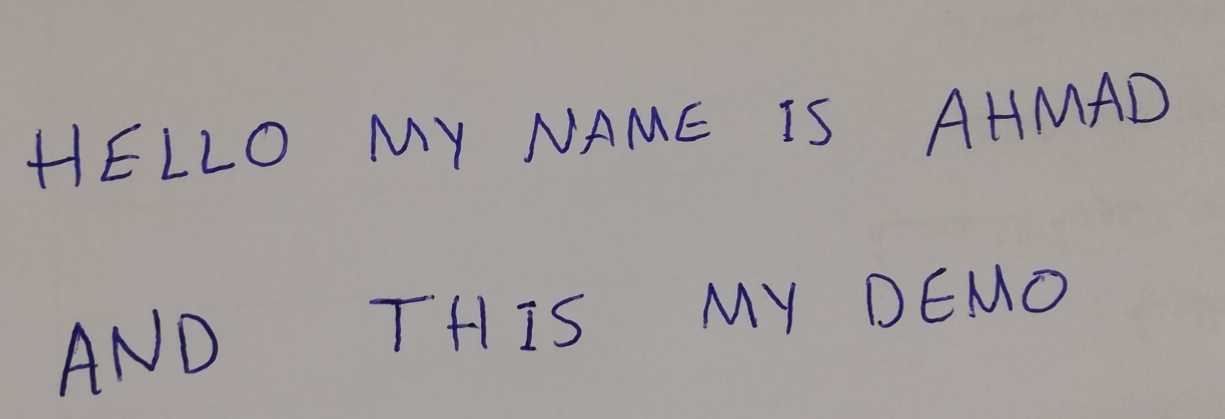 HELLO MY NAME IS AHMAD
AND THIS MY DEMO